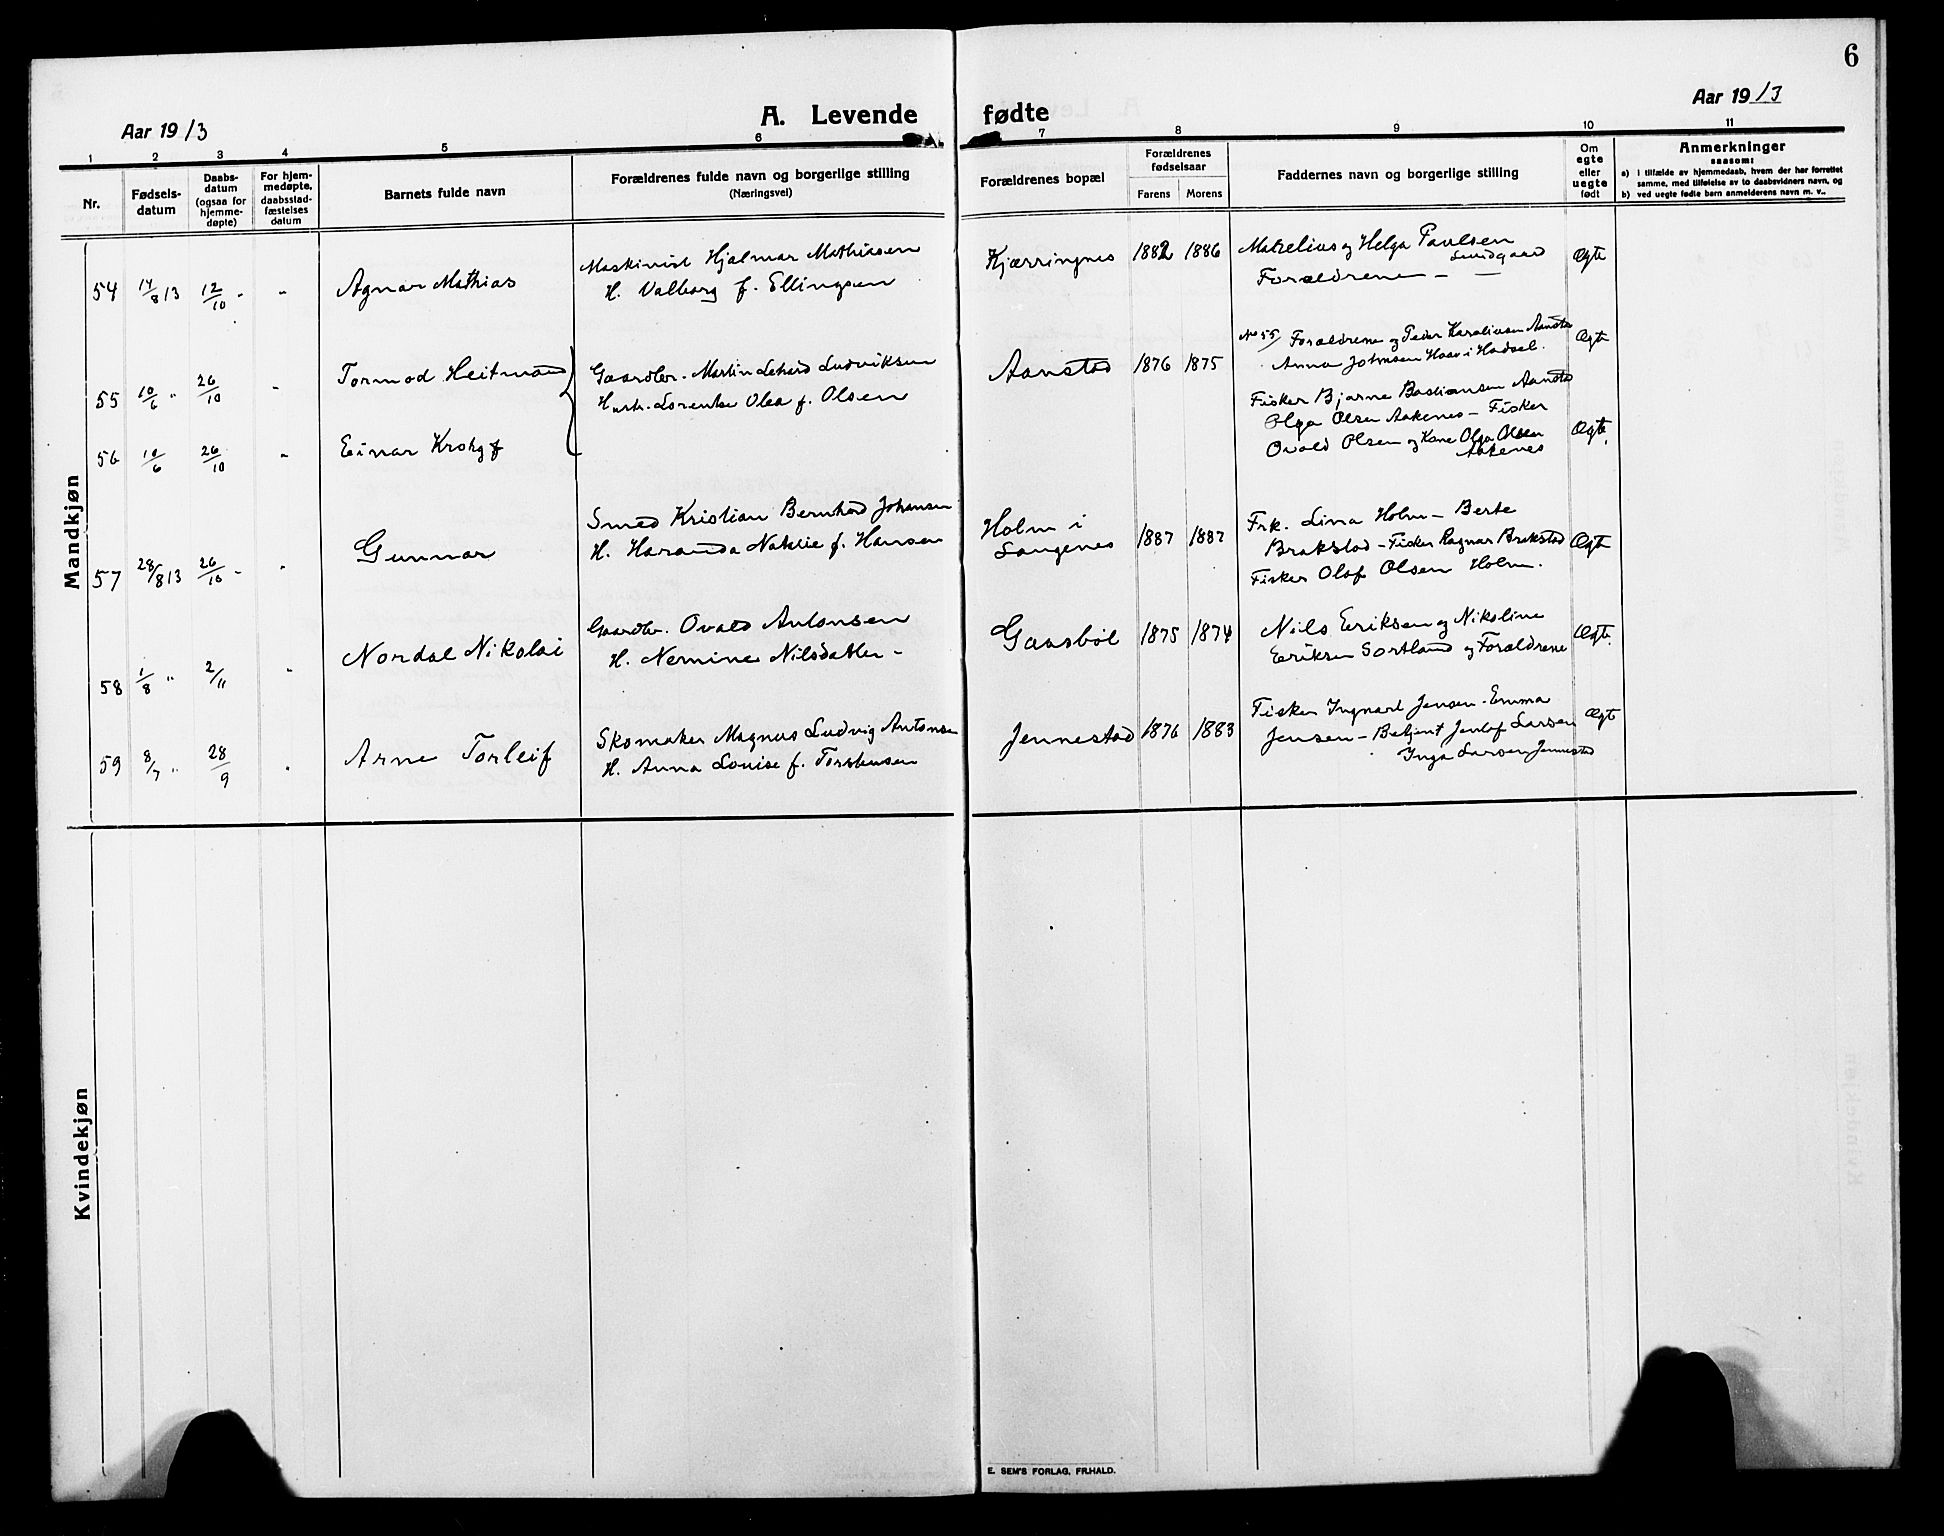 6
Aar 1913
A. Levende fødte
Aar 1913
1 2 3 4 5 6 7 8 9 10 11
Nr.
Fødsels-
datum
Daabs-
datum
(ogsaa for
hjemme-
døpte)
For hjem-
medøpte,
daabsstad-
fæstelses
datum
Barnets fulde navn
Forældrenes fulde navn og borgerlige stilling
(Næringsvei)
Forældrenes bopæl
Forældrenes
fødselsaar
Farens Morens
Faddernes navn og borgerlige stilling
Om
egte
eller
uegte
født
Anmerkninger
saasom:
a) i tilfælde av hjemmedaab, hvem der har forrettet
samme, med tilføielse av to daabsvidners navn, og
b) ved uegte fødte barn anmelderens navn m. v..
Mandkjøn
54 14/8 13 12/10 " "
Agnar Mathias
Maskinist Hjalmar Mathiasen
H. Valborg f. Ellingsen
Kjærringnes 1882 1886
og Helga Paulsen
Forældrene — —
Ægte
55 10/6 " 26/10 "
Tormod Heitmand
Gaardbr. Martin Ludviksen
Hustr. Lorentse Olea f. Olsen
Aanstad 1876 1875
No 55/ Forældrene og Peder Aanstad
Anna Johnsen Haav i Hadsel.
Ægte
56 10/6 26/10 "
Einar Krohg
Fisker Bjarne Bastiansen Aanstad
Olga Olsen Aakenes — Fisker
Ovald Olsen og Kone Olga Olsen
Aakenes
Ægte
57 28/8 13 26/10 " "
Gunnar
Smed Kristian Bernhard Johansen
H. Haranda Natalie f. Hansen
Holm i
Langenes 1887 1887
Frk. Lina Holm — Berte
Brakstad — Fisker Ragnar Brekstad
Fisker Olaf Olsen Holm.
Ægte
58 1/8 " 2/11 "
Nordal Nikolai
Gaardbr. Ovald Antonsen
H. Nermine Nilsdatter —
Gaasbøl 1875 1874
Nils Eriksen og Nikoline
Eriksen Sortland og Forældrene
Ægte.
59 8/7 " 28/9 "
Arne Torleif
Skomaker Magnus Ludvig Antonsen
H. Anna Louise f. Torstensen
Jennestad 1876 1883
Fisker Ingvart Jensen — Emma
Jensen — Betjent Larsen
Inga Larsen Jennestad
Ægt
Kvindekjøn
E. SEM'S FORLAG, FR.HALD.